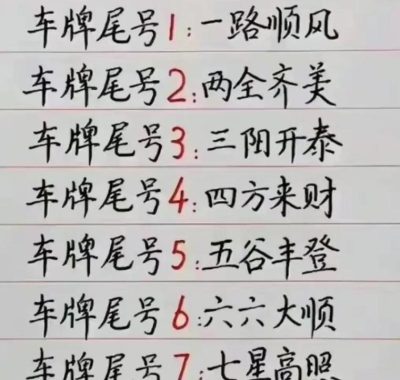 车牌尾号1:一路顺风
车牌尾号2:两全齐美
车牌尾号3:三阳开泰
车牌尾号4:四方来财
车牌尾号5:五谷丰登
车牌尾号6:六六大顺
车牌尾号7:七星高照